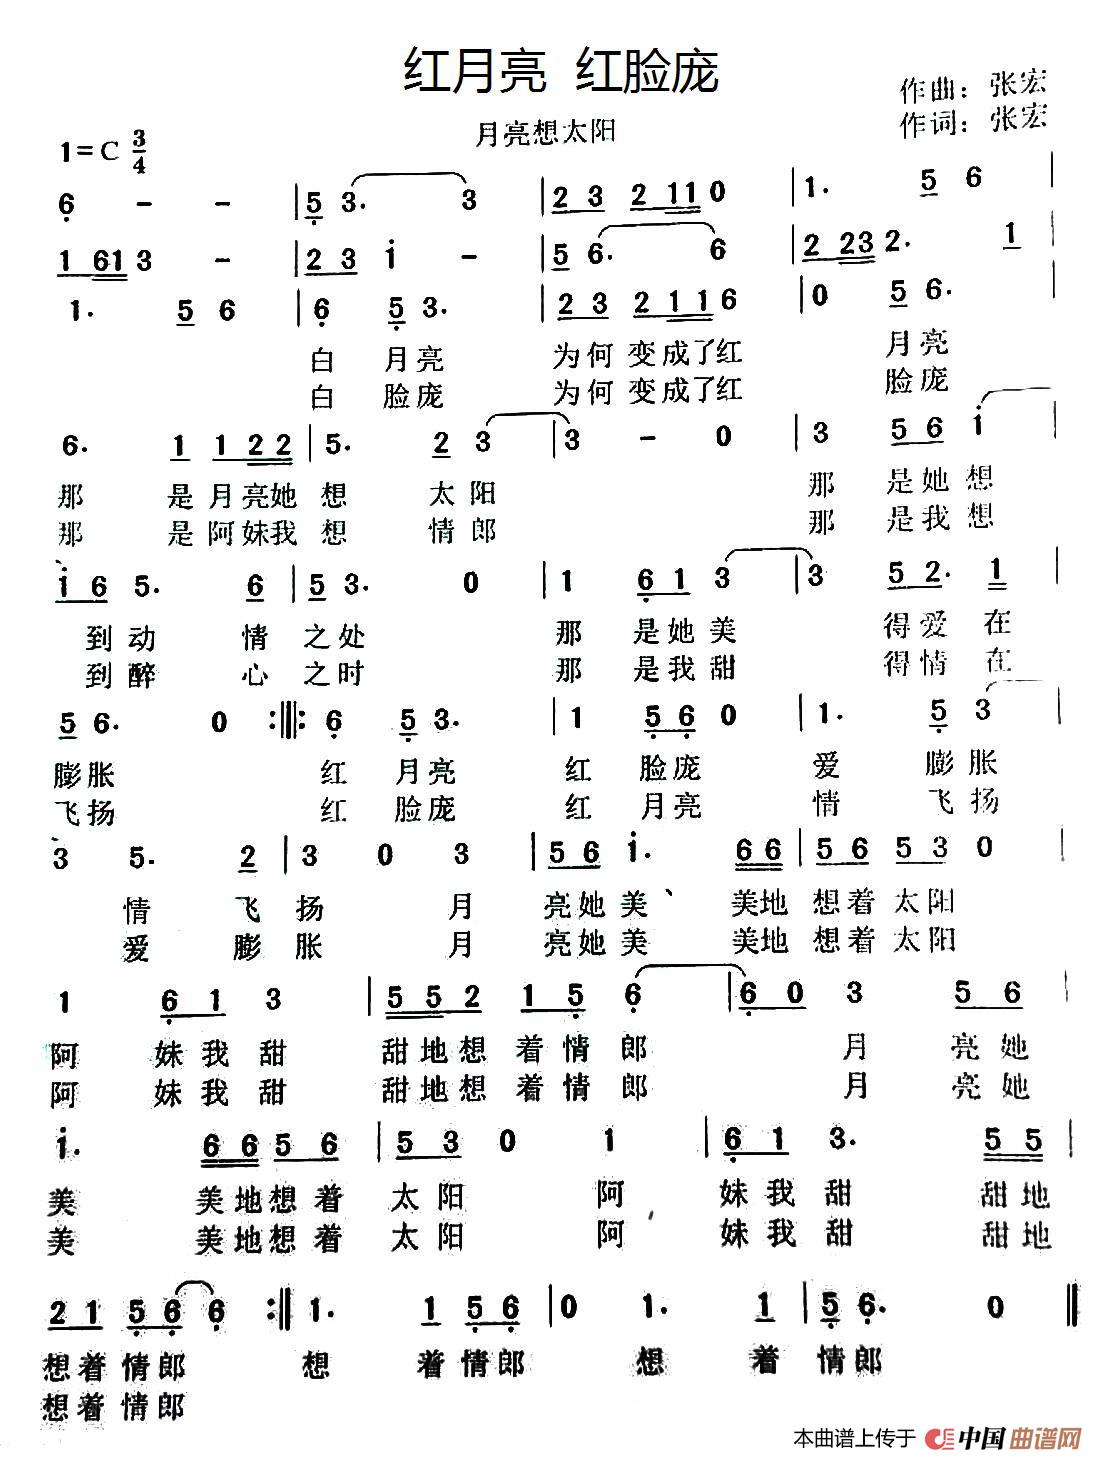 红月亮 红脸庞
作曲：张宏
月亮想太阳
作词：张宏
1=C 3/4
6 - - | 5 3. 3 | 2 3 2 1 1 0 | 1. 5 6 |
1 6 1 3 - | 2 3 i - | 5 6. 6 | 2 2 3 2. 1 |
1. 5 6 | 6 5 3. | 2 3 2 1 1 6 | 0 5 6. |
白 月亮 为何 变成了红 月亮
白 脸庞 为何 变成了红 脸庞
6. 1 1 2 2 | 5. 2 3 | 3 - 0 | 3 5 6 i |
那 是月亮她 想 太阳 那 是她想
那 是阿妹我 想 情郎 那 是我想
i 6 5. 6 | 5 3. 0 | 1 6 1 3 | 3 5 2. 1 |
到动 情 之处 那 是她美 得爱在
到醉 心 之时 那 是我甜 得情在
5 6. 0 :||: 6 5 3. | 1 5 6 0 | 1. 5 3 |
膨胀 红 月亮 红 脸庞 爱 膨胀
飞扬 红 脸庞 红 月亮 情 飞扬
3 5. 2 | 3 0 3 | 5 6 i. 6 6 | 5 6 5 3 0 |
情 飞 扬 月 亮她美、 美地 想着太阳
爱 膨 胀 月 亮她美 美地 想着太阳
1 6 1 3 | 5 5 2 1 5 6 | 6 0 3 5 6 |
阿 妹我甜 甜地想 着情郎 月 亮她
阿 妹我甜 甜地想 着情郎 月 亮她
i. 6 6 5 6 | 5 3 0 1 | 6 1 3. 5 5 |
美 美地想着 太阳 阿 妹我甜 甜地
美 美地想着 太阳 阿 妹我甜 甜地
2 1 5 6 6 :|| 1. 1 5 6 | 0 1. 1 | 5 6. 0 ||
想着情郎 想 着情郎 想 着 情郎
想着情郎
本曲谱上传于 中国曲谱网